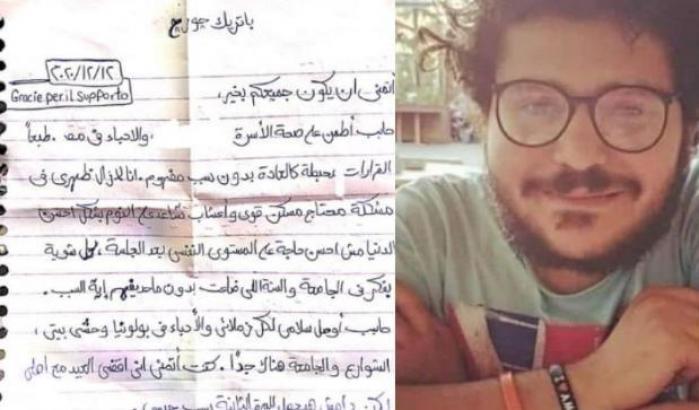 باتريك جورج
٢٠٢٠/١٢/١٢
Gracie per il supporto
أتمنى ان يكون جميعكم بخير،
حابب أطمن على صحة الأسرة والاحباء في مصر. طبعاً
القرارات محبطة كالعادة بدون سبب مفهوم. انا لازال ظهري في
مشكلة محتاج مسكن قوي وأعشاب تساعدني ع النوم بشكل احسن
الدنيا مش احسن حاجة على المستوى النفسي بعد الجلسة، كل شوية
بفكر في الجامعة والسنة اللي ضاعت بدون ماحد يفهم إية السبب.
حابب أوصل سلامي لكل زملائي والأحباء في بولونيا وحشني بيتي،
الشوارع والجامعة هناك جداً. كنت أتمنى اني اقضي العيد مع اهلي
لكن دا مش هيحصل للمرة التانية بسبب
I ♥ AM